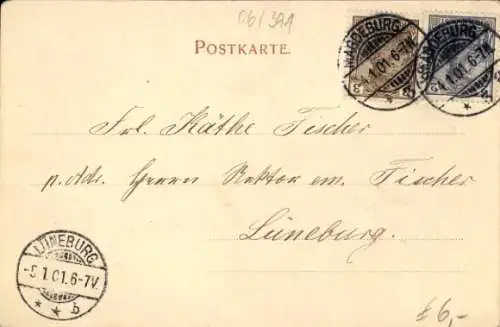 06/391
POSTKARTE.
MAGDEBURG
1.1.01.6-7N.
1.01.6-7N
3
Frl. Käthe Fischer
p. Adr. Herrn Rektor em. Fischer
Lüneburg.
LÜNEBURG
-5.1.01.6-7V.
* * b
£6,-